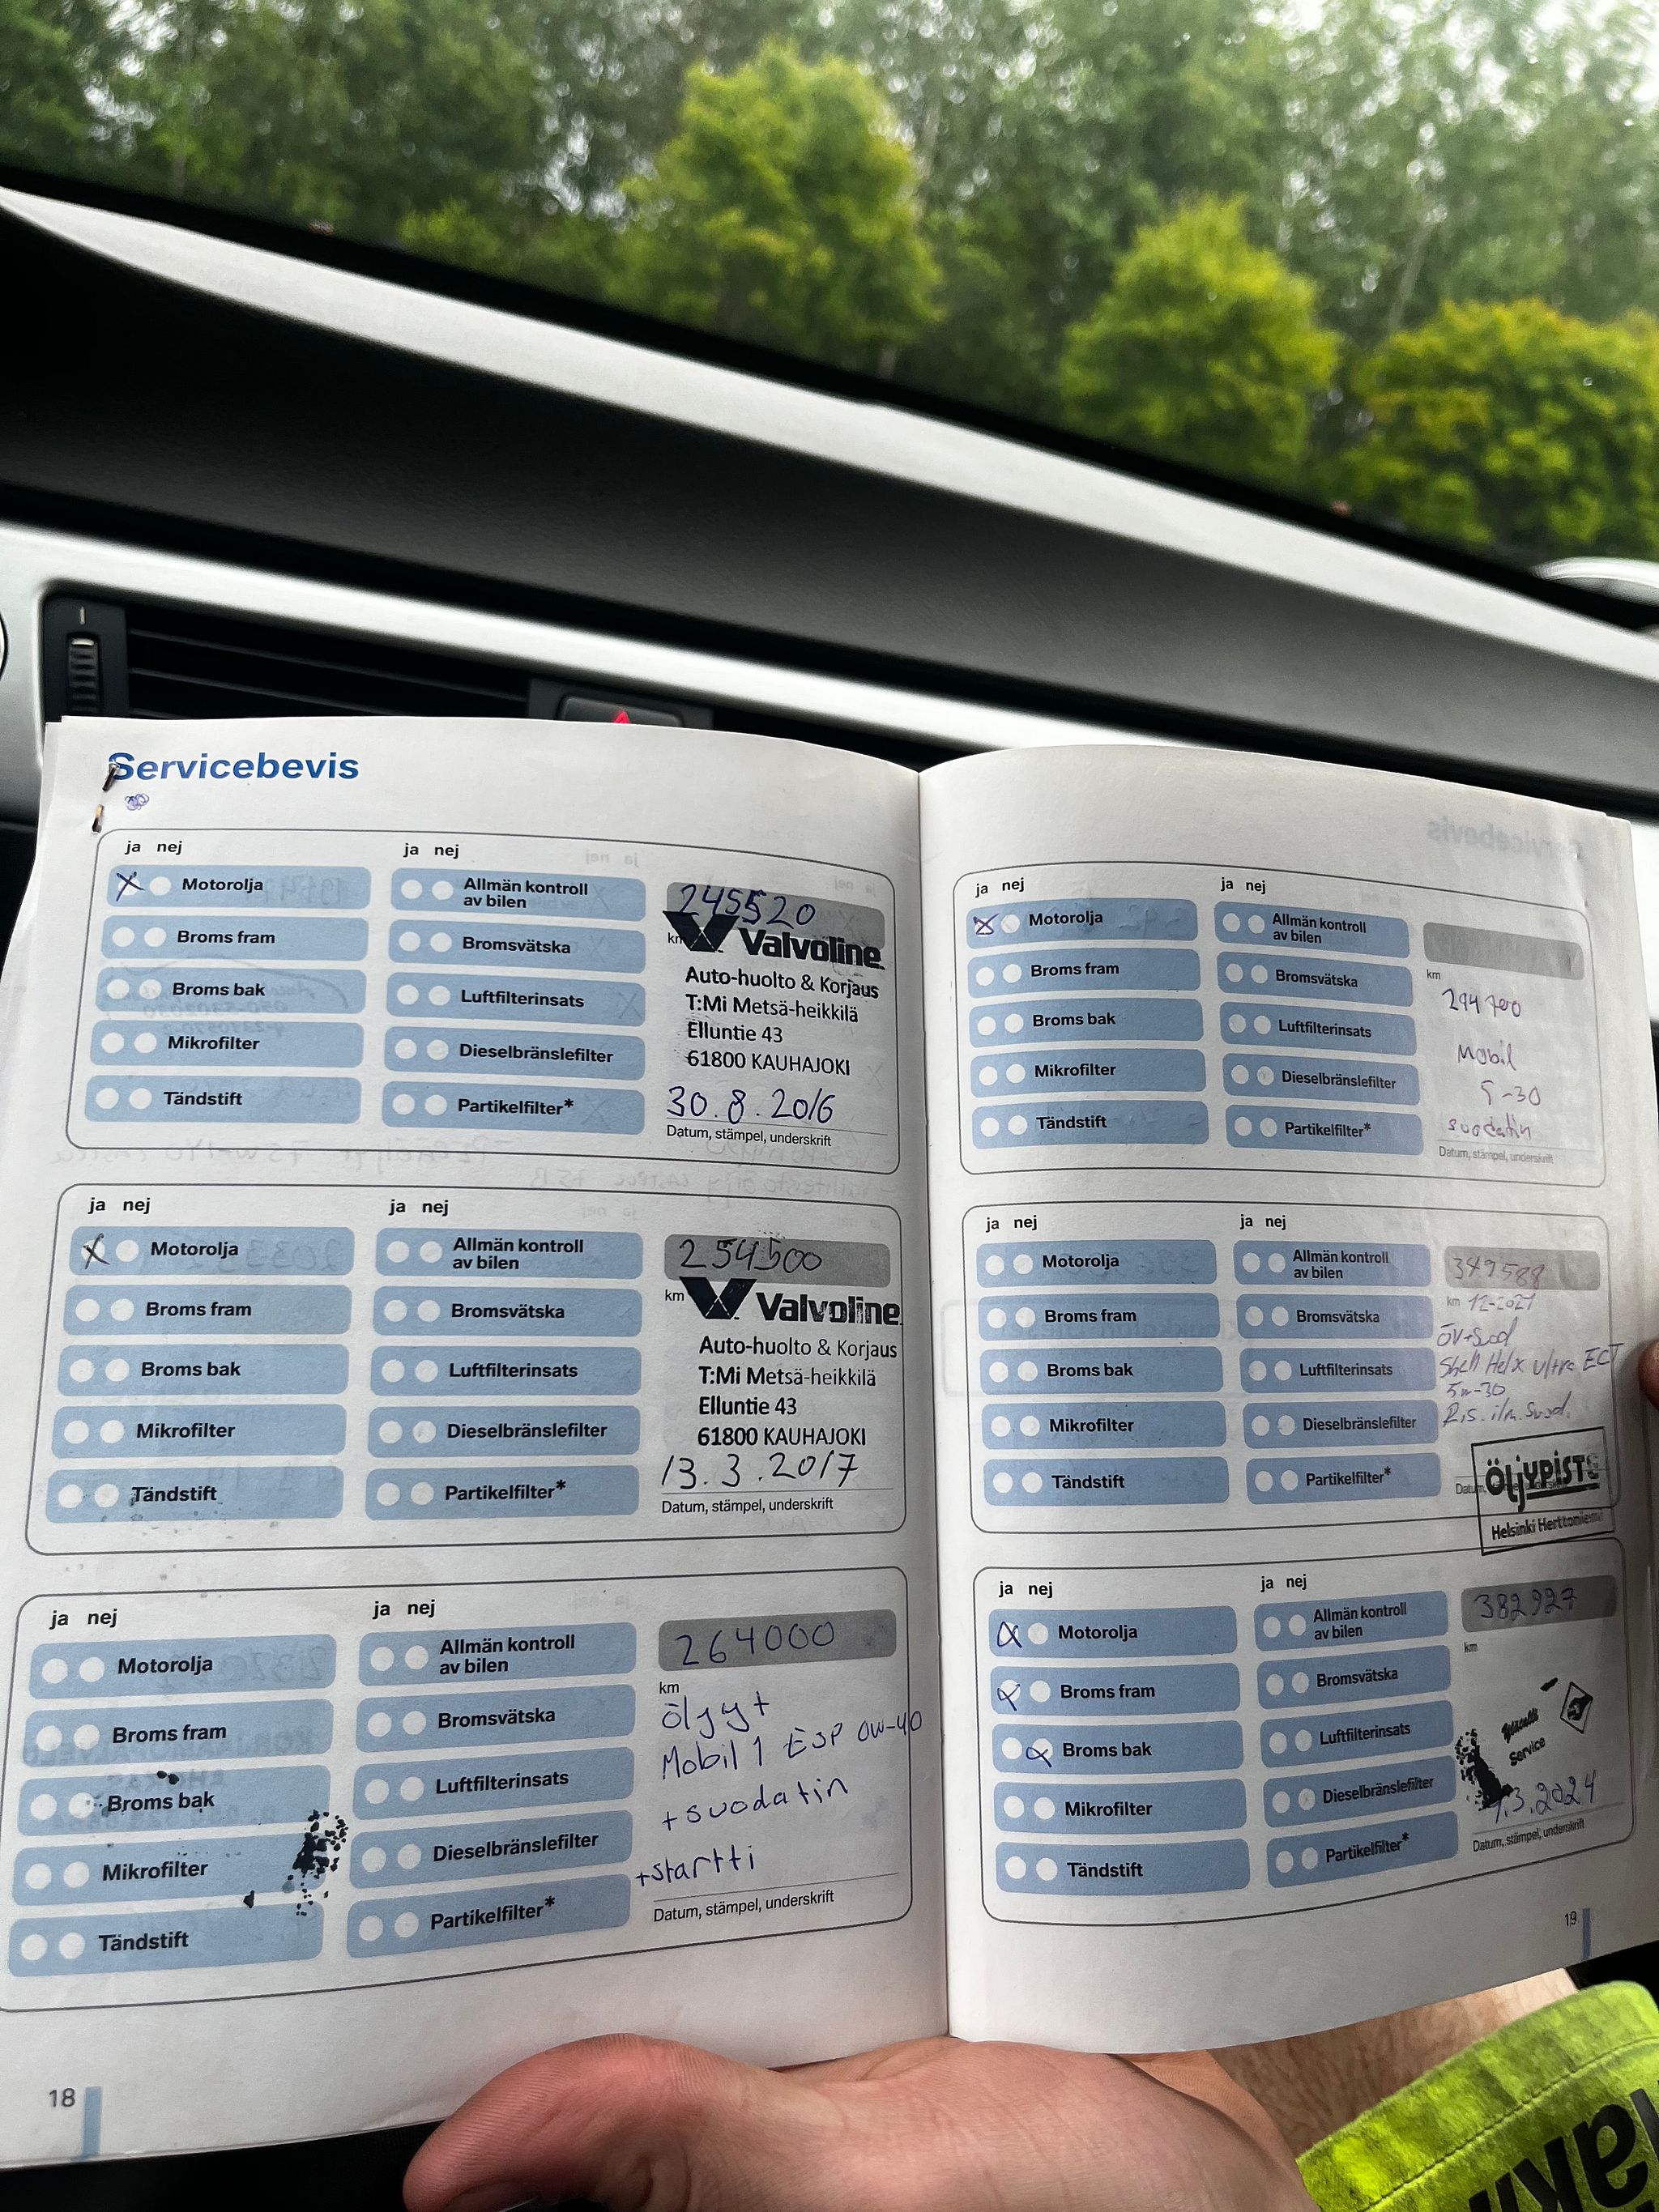 Servicebevis
ja nej
ja nej
Motorolja
Allmän kontroll
av bilen
Broms fram
Bromsvätska
Broms bak
Luftfilterinsats
Mikrofilter
Dieselbränslefilter
Tändstift
Partikelfilter*
245520
km
Valvoline
Auto-huolto & Korjaus
T:Mi Metsä-heikkilä
Elluntie 43
61800 KAUHAJOKI
30.8.2016
Datum, stämpel, underskrift
ja nej
ja nej
Motorolja
Allmän kontroll
av bilen
Broms fram
Bromsvätska
Broms bak
Luftfilterinsats
Mikrofilter
Dieselbränslefilter
Tändstift
Partikelfilter*
254500
km
Valvoline
Auto-huolto & Korjaus
T:Mi Metsä-heikkilä
Elluntie 43
61800 KAUHAJOKI
13.3.2017
Datum, stämpel, underskrift
ja nej
ja nej
Motorolja
Allmän kontroll
av bilen
Broms fram
Bromsvätska
Broms bak
Luftfilterinsats
Mikrofilter
Dieselbränslefilter
Tändstift
Partikelfilter*
264000
km
öljy+
Mobil 1 ESP 0W-40
+suodatin
+startti
Datum, stämpel, underskrift
18
ja nej
ja nej
Motorolja
Allmän kontroll
av bilen
Broms fram
Bromsvätska
Broms bak
Luftfilterinsats
Mikrofilter
Dieselbränslefilter
Tändstift
Partikelfilter*
km
Mobil
5-30
suodatin
Datum, stämpel, underskrift
ja nej
ja nej
Motorolja
Allmän kontroll
av bilen
Broms fram
Bromsvätska
Broms bak
Luftfilterinsats
Mikrofilter
Dieselbränslefilter
Tändstift
Partikelfilter*
349588
km 12-2021
öv+suod
Shell Helix ultra ECT
5w-30
Ris. ilm. suod.
Datum,
ÖljYPISTE
Helsinki Herttoniemi
ja nej
ja nej
Motorolja
Allmän kontroll
av bilen
Broms fram
Bromsvätska
Broms bak
Luftfilterinsats
Mikrofilter
Dieselbränslefilter
Tändstift
Partikelfilter*
382927
km
Service
.3.2024
Datum, stämpel, underskrift
19